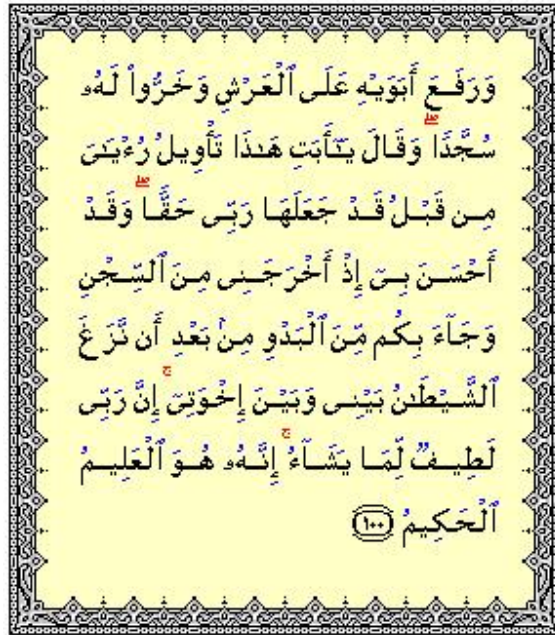 وَرَفَعَ أَبَوَيْهِ عَلَى ٱلْعَرْشِ وَخَرُّوا۟ لَهُۥ
سُجَّدًۭا ۖ وَقَالَ يَـٰٓأَبَتِ هَـٰذَا تَأْوِيلُ رُءْيَـٰىَ
مِن قَبْلُ قَدْ جَعَلَهَا رَبِّى حَقًّۭا ۖ وَقَدْ
أَحْسَنَ بِىٓ إِذْ أَخْرَجَنِى مِنَ ٱلسِّجْنِ
وَجَآءَ بِكُم مِّنَ ٱلْبَدْوِ مِنۢ بَعْدِ أَن نَّزَغَ
ٱلشَّيْطَـٰنُ بَيْنِى وَبَيْنَ إِخْوَتِىٓ ۚ إِنَّ رَبِّى
لَطِيفٌۭ لِّمَا يَشَآءُ ۚ إِنَّهُۥ هُوَ ٱلْعَلِيمُ
ٱلْحَكِيمُ ١٠٠